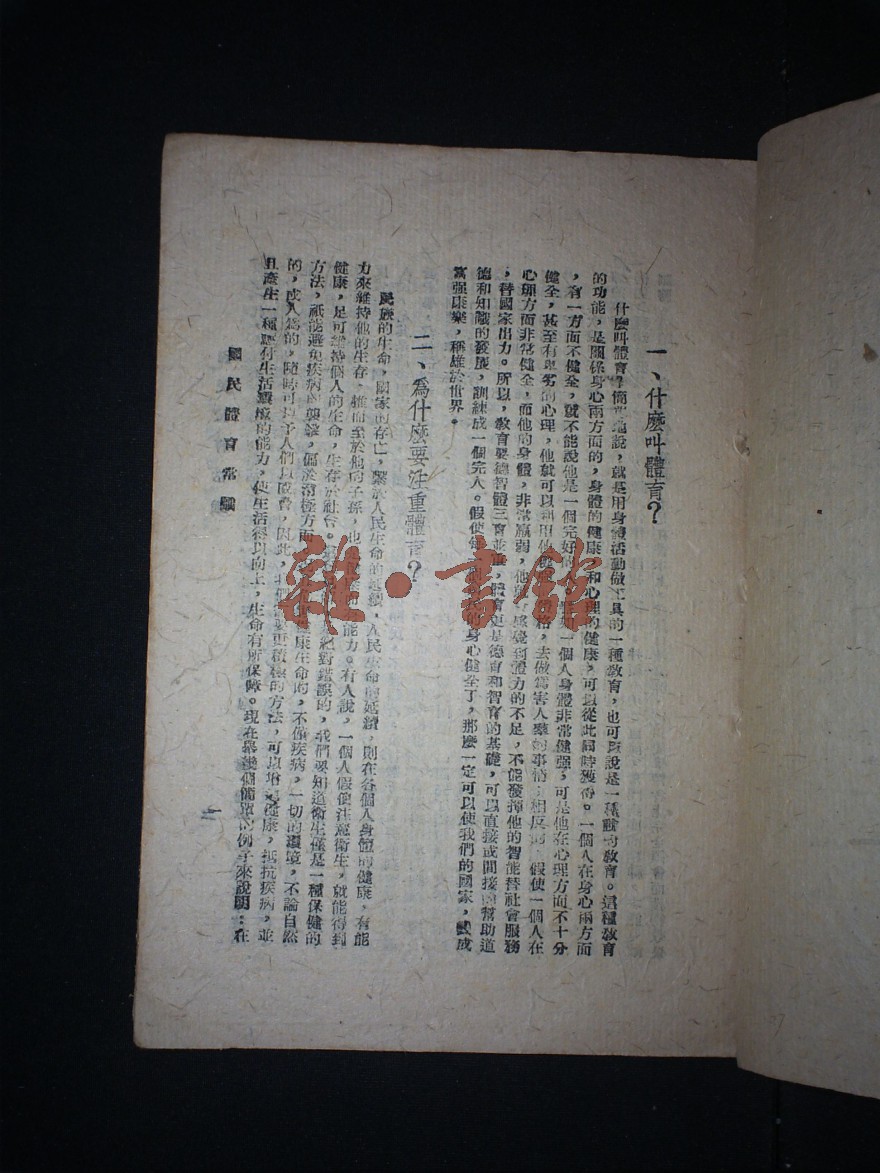 一、什麼叫體育？
什麼叫體育？簡單地說，就是用身體活動做工具的一種教育，也可以說是一種體的教育。這種教育
的功能，是關係身心兩方面的，身體的健康，和心理的健康，可以從此同時獲得。一個人在身心兩方面
，有一方面不健全，就不能說他是一個完好的人。譬如一個人身體非常健强，可是他在心理方面不十分
健全，甚至有卑劣的心理，他就可以利用他健强的體格，去做傷害人羣的事情；相反的，假使一個人在
心理方面非常健全，而他的身體，非常羸弱，他就會感覺到體力的不足，不能發揮他的智能替社會服務
，替國家出力。所以，教育要德智體三育並重，體育更是德育和智育的基礎，可以直接或間接的幫助道
德和知識的發展，訓練成一個完人。假使每個國民的身心健全了，那麼一定可以使我們的國家，變成
富强康樂，稱雄於世界。
二、爲什麼要注重體育？
民族的生命，國家的存亡，繫於人民生命的延續，人民生命的延續，則在各個人身體的健康，有能
力來維持他的生存，推而至於他的子孫，也能能力。有人說，一個人假使注意衛生，就能得到
健康，足可維持個人的生命，生存於社會。絕對錯誤的，我們要知道衛生僅是一種保健的
方法，祇能避免疾病的襲擊，偏於消極方面健康生命的，不僅疾病，一切的環境，不論自然
的，或人爲的，隨時可以予人們以威脅，因此，我們需要更積極的方法，可以增進健康，抵抗疾病，並
且產生一種應付生活環境的能力，使生活得以向上，生命有所保障。現在舉幾個簡單的例子來說明：在
國民體育常識
一
雜·書館
27